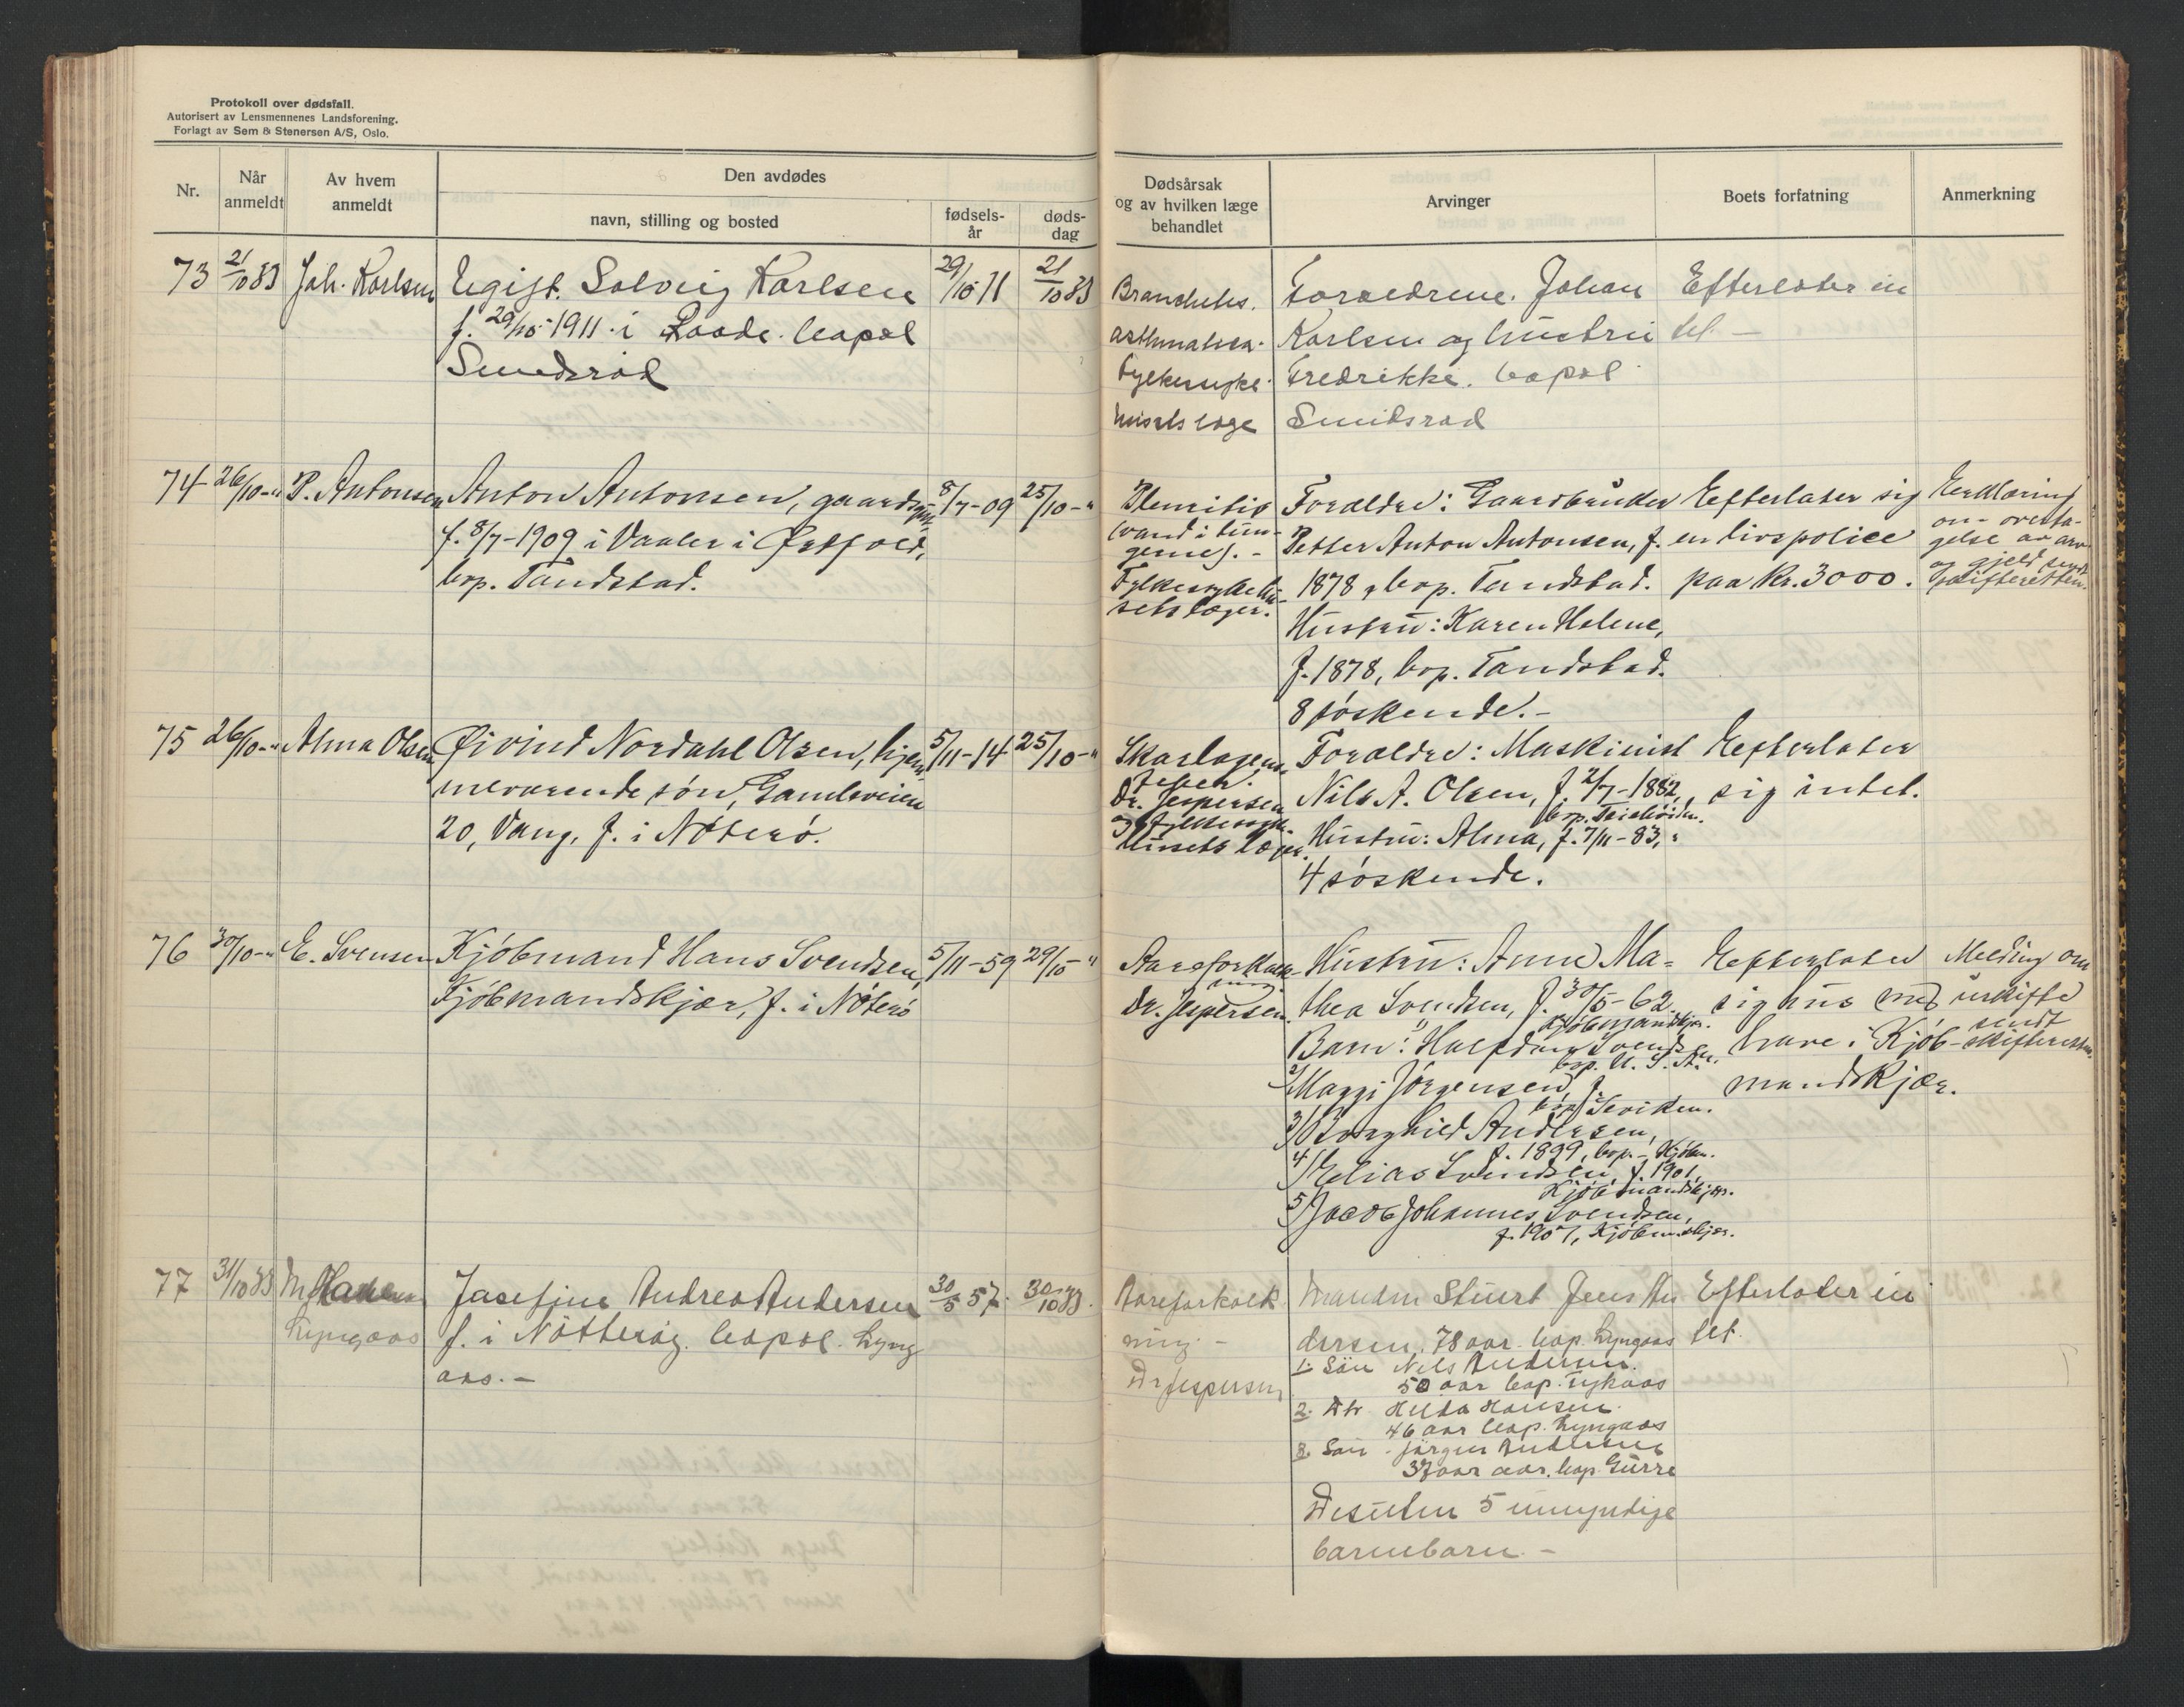 Protokoll over dødsfall.
Autorisert av Lensmennenes Landsforening.
Forlagt av Sem & Stenersen A/S, Oslo.
Nr.
Når anmeldt
Av hvem anmeldt
Den avdødes
navn, stilling og bosted
fødsels-år
døds-dag
Dødsårsak og av hvilken læge behandlet
Arvinger
Boets forfatning
Anmerkning
73 21/10 33 Joh. Karlsen
Ugift. Solveig Karlsen 29/10 11 21/10 33
f. 29/10-1911 i Raade. bopæl
Smidsrød
Bronchites.
asthmatica.
Fylkessyke
husets læge
Foreldrene. Johan
Karlsen og hustru
Fredrikke. bopæl
Smidsrød
Efterlater in
tet. —
74 26/10-" P. Antonsen
Anton Antonsen, gaardsgut 8/7-09 25/10-"
f. 8/7-1909 i Vaaler i Østfold,
bop. Tandstad.
Pleuritis
(vand i lun-
gene). -
Fylkessykehu-
sets læger.
Forældre: Gaardbruker
Petter Anton Antonsen, f.
1878, bop. Tandstad.
Hustru: Karen Helene,
f. 1878, bop. Tandstad.
8 søskende. -
Efterlater sig
en livspolice
paa Kr. 3000.
Erklæring
om overta-
gelse av arv
og gjeld sendt
skifteretten.
75 26/10-" Alma Olsen
Øivind Nordahl Olsen, hjem- 5/11-14 25/10-"
meværende søn, Gamleveien
20, Vang, f. i Nøterø.
Skarlagens-
feber.
Dr. Jespersen
og Fylkessyke-
husets læger.
Forældre: Maskinist
Nils A. Olsen, f. 2/7-1882,
Hustru: Alma, f. 7/11-83, "
4 søskende.
Efterlater
sig intet.
76 30/10-" E. Svensen
Kjøbmand Hans Svendsen, 5/11-59 29/10 "
Kjøbmandskjær, f. i Nøterø
Aareforkalk-
ning.
Dr. Jespersen.
Hustru: Anne Ma-
thea Svendsen, f. 30/5-62.
Kjøbmandskjær.
Barn: 1) Halfdan Svendsen
bop. U. S. A.
2) Maggi Jørgensen, f.
bop.
3) Borghild Andersen,
f. 1899, bop. - Kjøbm.
4) Elias Svendsen, f. 1901,
Kjøbmandskjær.
5) Jacob Johannes Svendsen,
f. 1907, Kjøbmandskjær.
Efterlater
sig hus med
have i Kjøb-
mandskjær.
Melding om
uskifte
sendt
skifteretten.
77 31/10 33 Hansen
Lyngaas
Josefine Andrea Andersen 30/5 57. 30/10 33.
f. i Nøtterøy. bopæl. Lyng
aas. —
Aareforkalk
ning. -
Dr Jespersen
Manden Stuert Jens An
dersen. 78 aar. bop. Lyngaas
1. Søn Nils Andersen.
50 aar bop.
2. Dtr Hilda Hansen.
46 aar bop. Lyngaas
3. Søn Jørgen Andersen
37 aar aar. bop.
Desuten 5 umyndige
barnebarn. -
Efterlater in
tet.